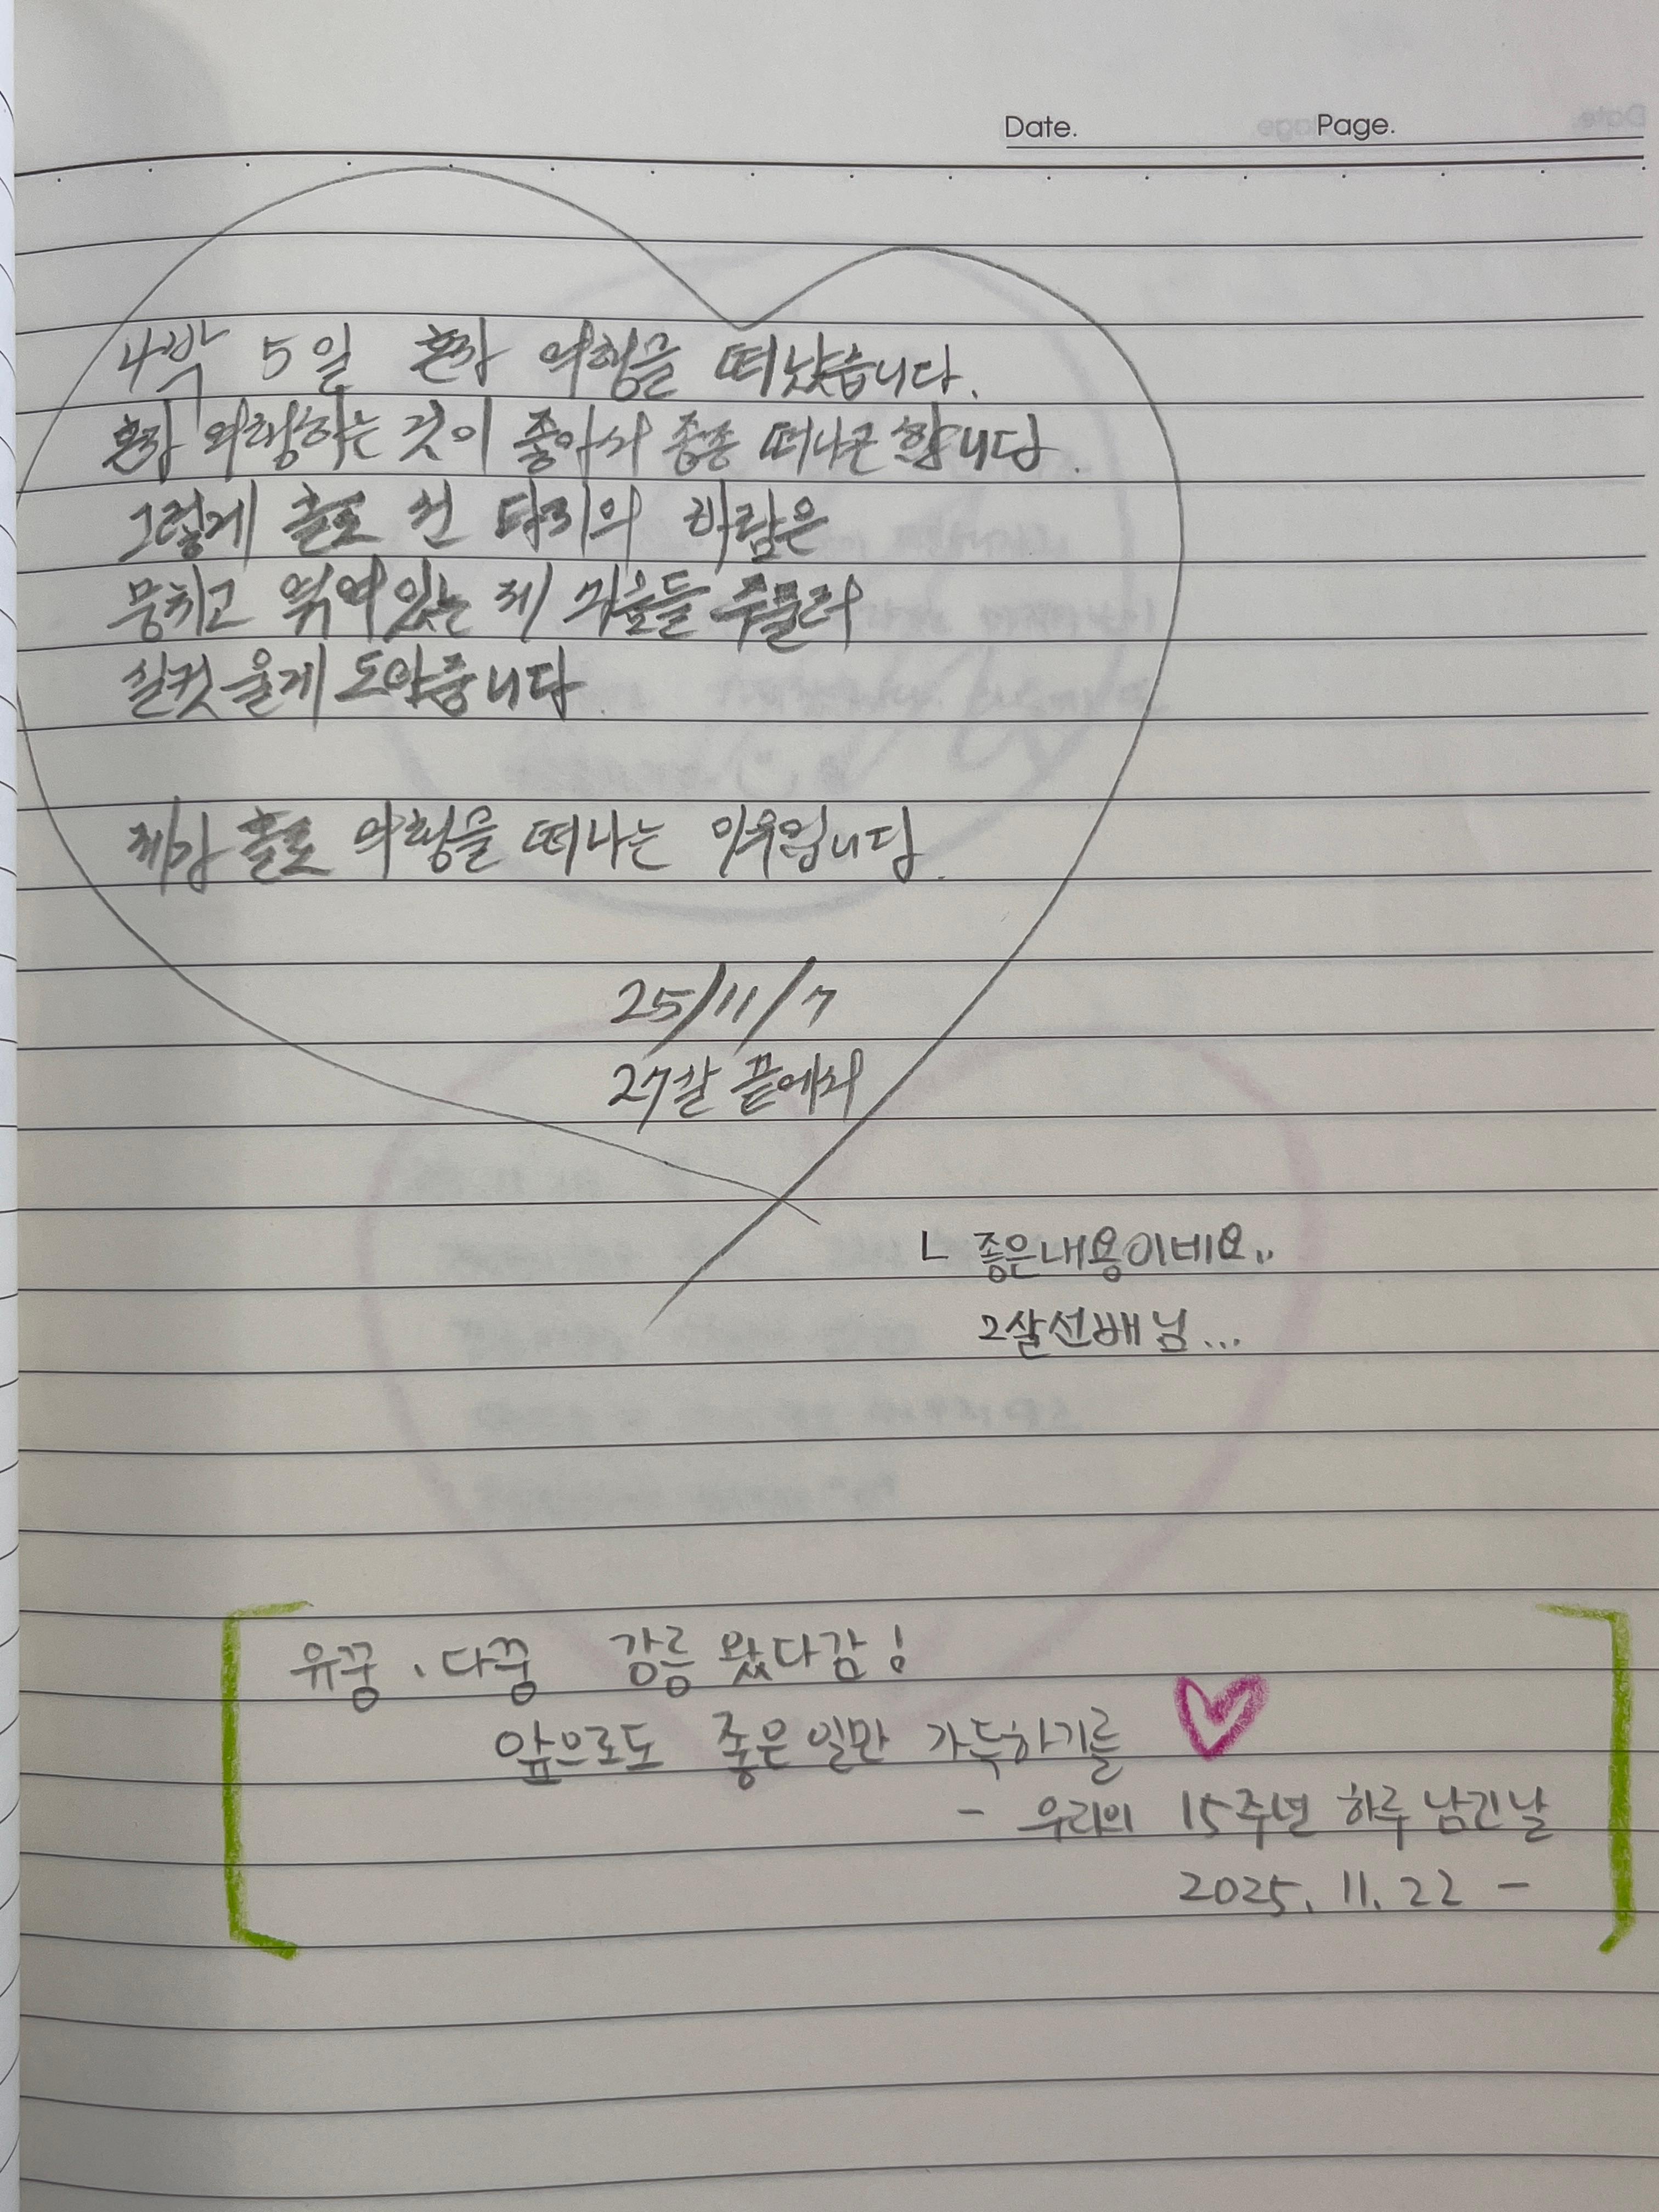 Date. Page.
4박 5일 혼자 여행을 떠났습니다.
혼자 여행하는 것이 좋아서 종종 떠나곤 합니다.
그렇게 홀로 선 타지의 바람은
뭉치고 엮여있는 제 마음들 주물러
실컷 울게 도와줍니다.
제가 홀로 여행을 떠나는 이유입니다.
25/11/7
27살 끝에서
ㄴ 좋은내용이네요..
2살선배님...
유꿍、다꿍 강릉 왔다감!
앞으로도 좋은일만 가득하기를
- 우리의 15주년 하루 남긴날
2025. 11. 22 -